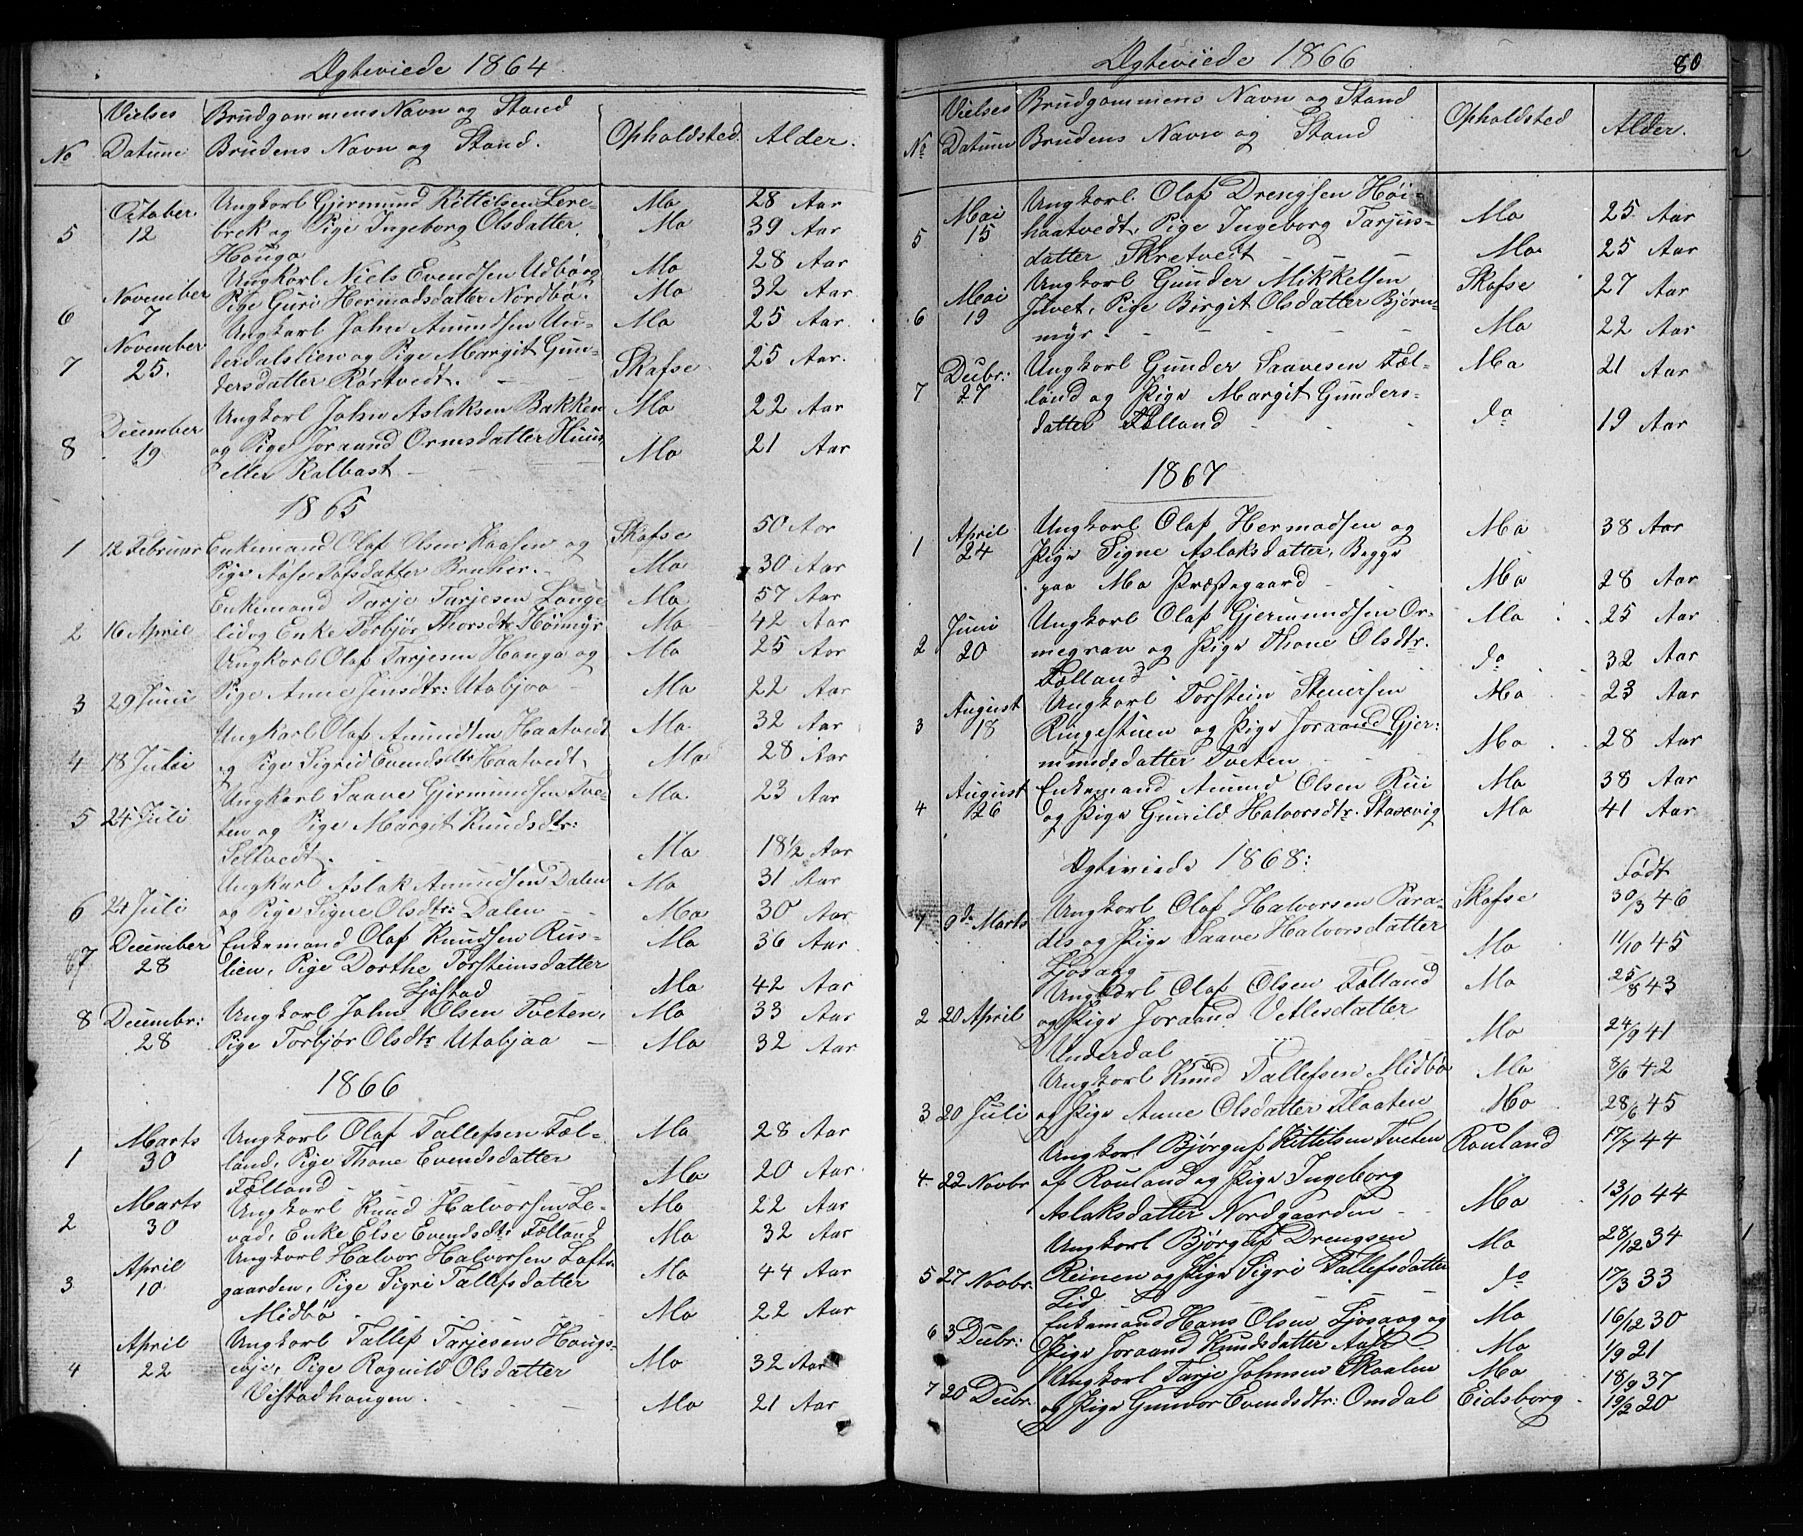 Ægteviede 1864
No
Vielses Datum
Brudgommens Navn og Stand
Brudens Navn og Stand.
Opholdsted.
Alder.
5 October 12 Ungkarl Gjermund Kittilsen Lere- Mo 28 Aar
brek og Pige Ingeborg Olsdatter Mo 39 Aar
Houga
6 November 7 Ungkarl Niels Evendsen Udbøen Mo 28 Aar
Pige Guri Hermodsdatter Nordbø. Mo 32 Aar
7 November 25. Ungkarl John Amundsen Un- Mo 25 Aar.
derdalslien og Pige Margit Gun- Skafse 25 Aar.
dersdatter Rørtvedt.
8 December 19 Ungkarl John Aslaksen Bakken Mo 22 Aar
og Pige Joraand Ormsdatter Huus Mo 21 Aar
eller Kalbast
1865
1 12 Februar Enkemand Olaf Olsen Kaasen og Skafse 50 Aar
Pige Aase Tofsdatter Mo 30 Aar
2 16 April Enkemand Tarje Tarjesen Louge Mo 57 Aar
lid og Enke Torbjør Thorsdtr Høimyr Mo 42 Aar
3 29 Juni Ungkarl Olaf Tarjesen Houga og Mo 25 Aar
Pige Anne Jensdtr: Utabjaa Mo 22 Aar
4 18 Julii Ungkarl Olaf Amundsen Haatvedt Mo 32 Aar
og Pige Sigrid Evendsdtr Haatvedt. Mo 28 Aar
5 24 Juli Ungkarl Saave Gjermundsen Tve- Mo 23 Aar
ten og Pige Margit Knudsdtr:
Seltvedt. Mo 18 1/2 Aar
6 24 Juli Ungkarl Aslak Amundsen Dalen Mo 31 Aar
og Pige Signe Olsdtr: Dalen Mo 30 Aar.
7 December 28 Enkemand Olaf Knudsen Rus- Mo 36 Aar
lien, Pige Dorthe Torsteinsdatter
Sjøstad Mo 42 Aar
8 Decembr: 28 Ungkarl John Olsen Tveten, Mo 33 Aar
Pige Torbjør Olsdtr Utabjaa Mo 32 Aar
1866
1 Marts 30 Ungkarl Olaf Tallefsen Fæl- Mo 28 Aar
land, Pige Thone Evendsdatter
Fælland Mo 20 Aar
2 Marts 30 Ungkarl Knud Halvorsen Le- Mo 22 Aar
vad, Enke Else Evendsdtr: Fælland Mo 32 Aar
3 April 10. Ungkarl Halvor Halvorsen Lofts- Mo 44 Aar
gaarden, Pige Sigri Tallefsdatter
Midbø Mo 22 Aar
4 April 22 Ungkarl Tallef Tarjesen Hougs-
eje, Pige Ragnild Olsdatter Mo 32 Aar
Vistadhaugen. Mo 21 Aar
Ægteviede 1866
80
No
Vielses Datum
Brudgommens Navn og Stand
Brudens Navn og Stand
Opholdsted
Alder.
5 Mai 15 Ungkarl Olaf Drengsen Høi- Mo 25 Aar
haatvedt, Pige Ingeborg Tarjus-
datter Skretvedt Mo 25 Aar
6 Mai 19 Ungkarl Gunder Mikkelsen Skafse 27 Aar
Juvet, Pige Birgit Olsdatter Bjørn-
myr. Mo 22 Aar
7 Decbr: 27 Ungkarl Gunder Saavesen Fæl- Mo 21 Aar
land og Pige Margit Gunders-
datter Fælland do 19 Aar
1867
1 April 24 Ungkarl Olaf Hermodsen og Mo 38 Aar
Pige Signe Aslaksdatter, Begge
paa Mo Præstegaard Mo 28 Aar
2 Juni 20 Ungkarl Olaf Gjermundsen Or- Mo 25 Aar
megrav og Pige Thone Olsdtr.
Fælland do 32 Aar
3 August 18 Ungkarl Torstein Steversen Mo 23 Aar
Ringestuen og Pige Joraand Gjer:
mundsdatter Tveten Mo 28 Aar
4 August 26 Enkemand Amund Olsen Rui Mo 38 Aar
og Pige Gunild Halvorsdtr. Staxevig Mo 41 Aar
Ægteviede 1868:
Født
1 9de Marts Ungkarl Olaf Halvorsen Para- Skafse 30/3 46
dis og Pige Saave Halvorsdatter
Ljosaag Mo 11/10 45
2 20 April Ungkarl Olaf Olsen Fælland Mo 25/8 43
og Pige Joraand Vetlesdatter
Underdal Mo 24/9 41
3 20 Juli Ungkarl Knud Tallefsen Midbø Mo 8/6 42
og Pige Anne Olsdatter Flaaten Mo 28/6 45
4. 22 Novbr Ungkarl Bjørguf Kittilsen Tveten Rauland 17/7 44
af Rauland og Pige Ingeborg
Aslaksdatter Nordgaarden Mo 13/10 44
5 27 Novbr. Ungkarl Bjørguf Drengsen Mo 28/12 34
Reinen og Pige Sigri Tallefsdatter do 17/3 33
Lid
6 3 Decbr: Enkemand Hans Olsen Ljosaag og Mo 16/12 30
Pige Joraand Knudsdatter Mo 1/9 21
7 20 Decbr. Ungkarl Tarje Johnsen Skaalen Mo 18/9 37
og Pige Gunvor Evendsdtr: Omdal Eidsborg 19/2 20